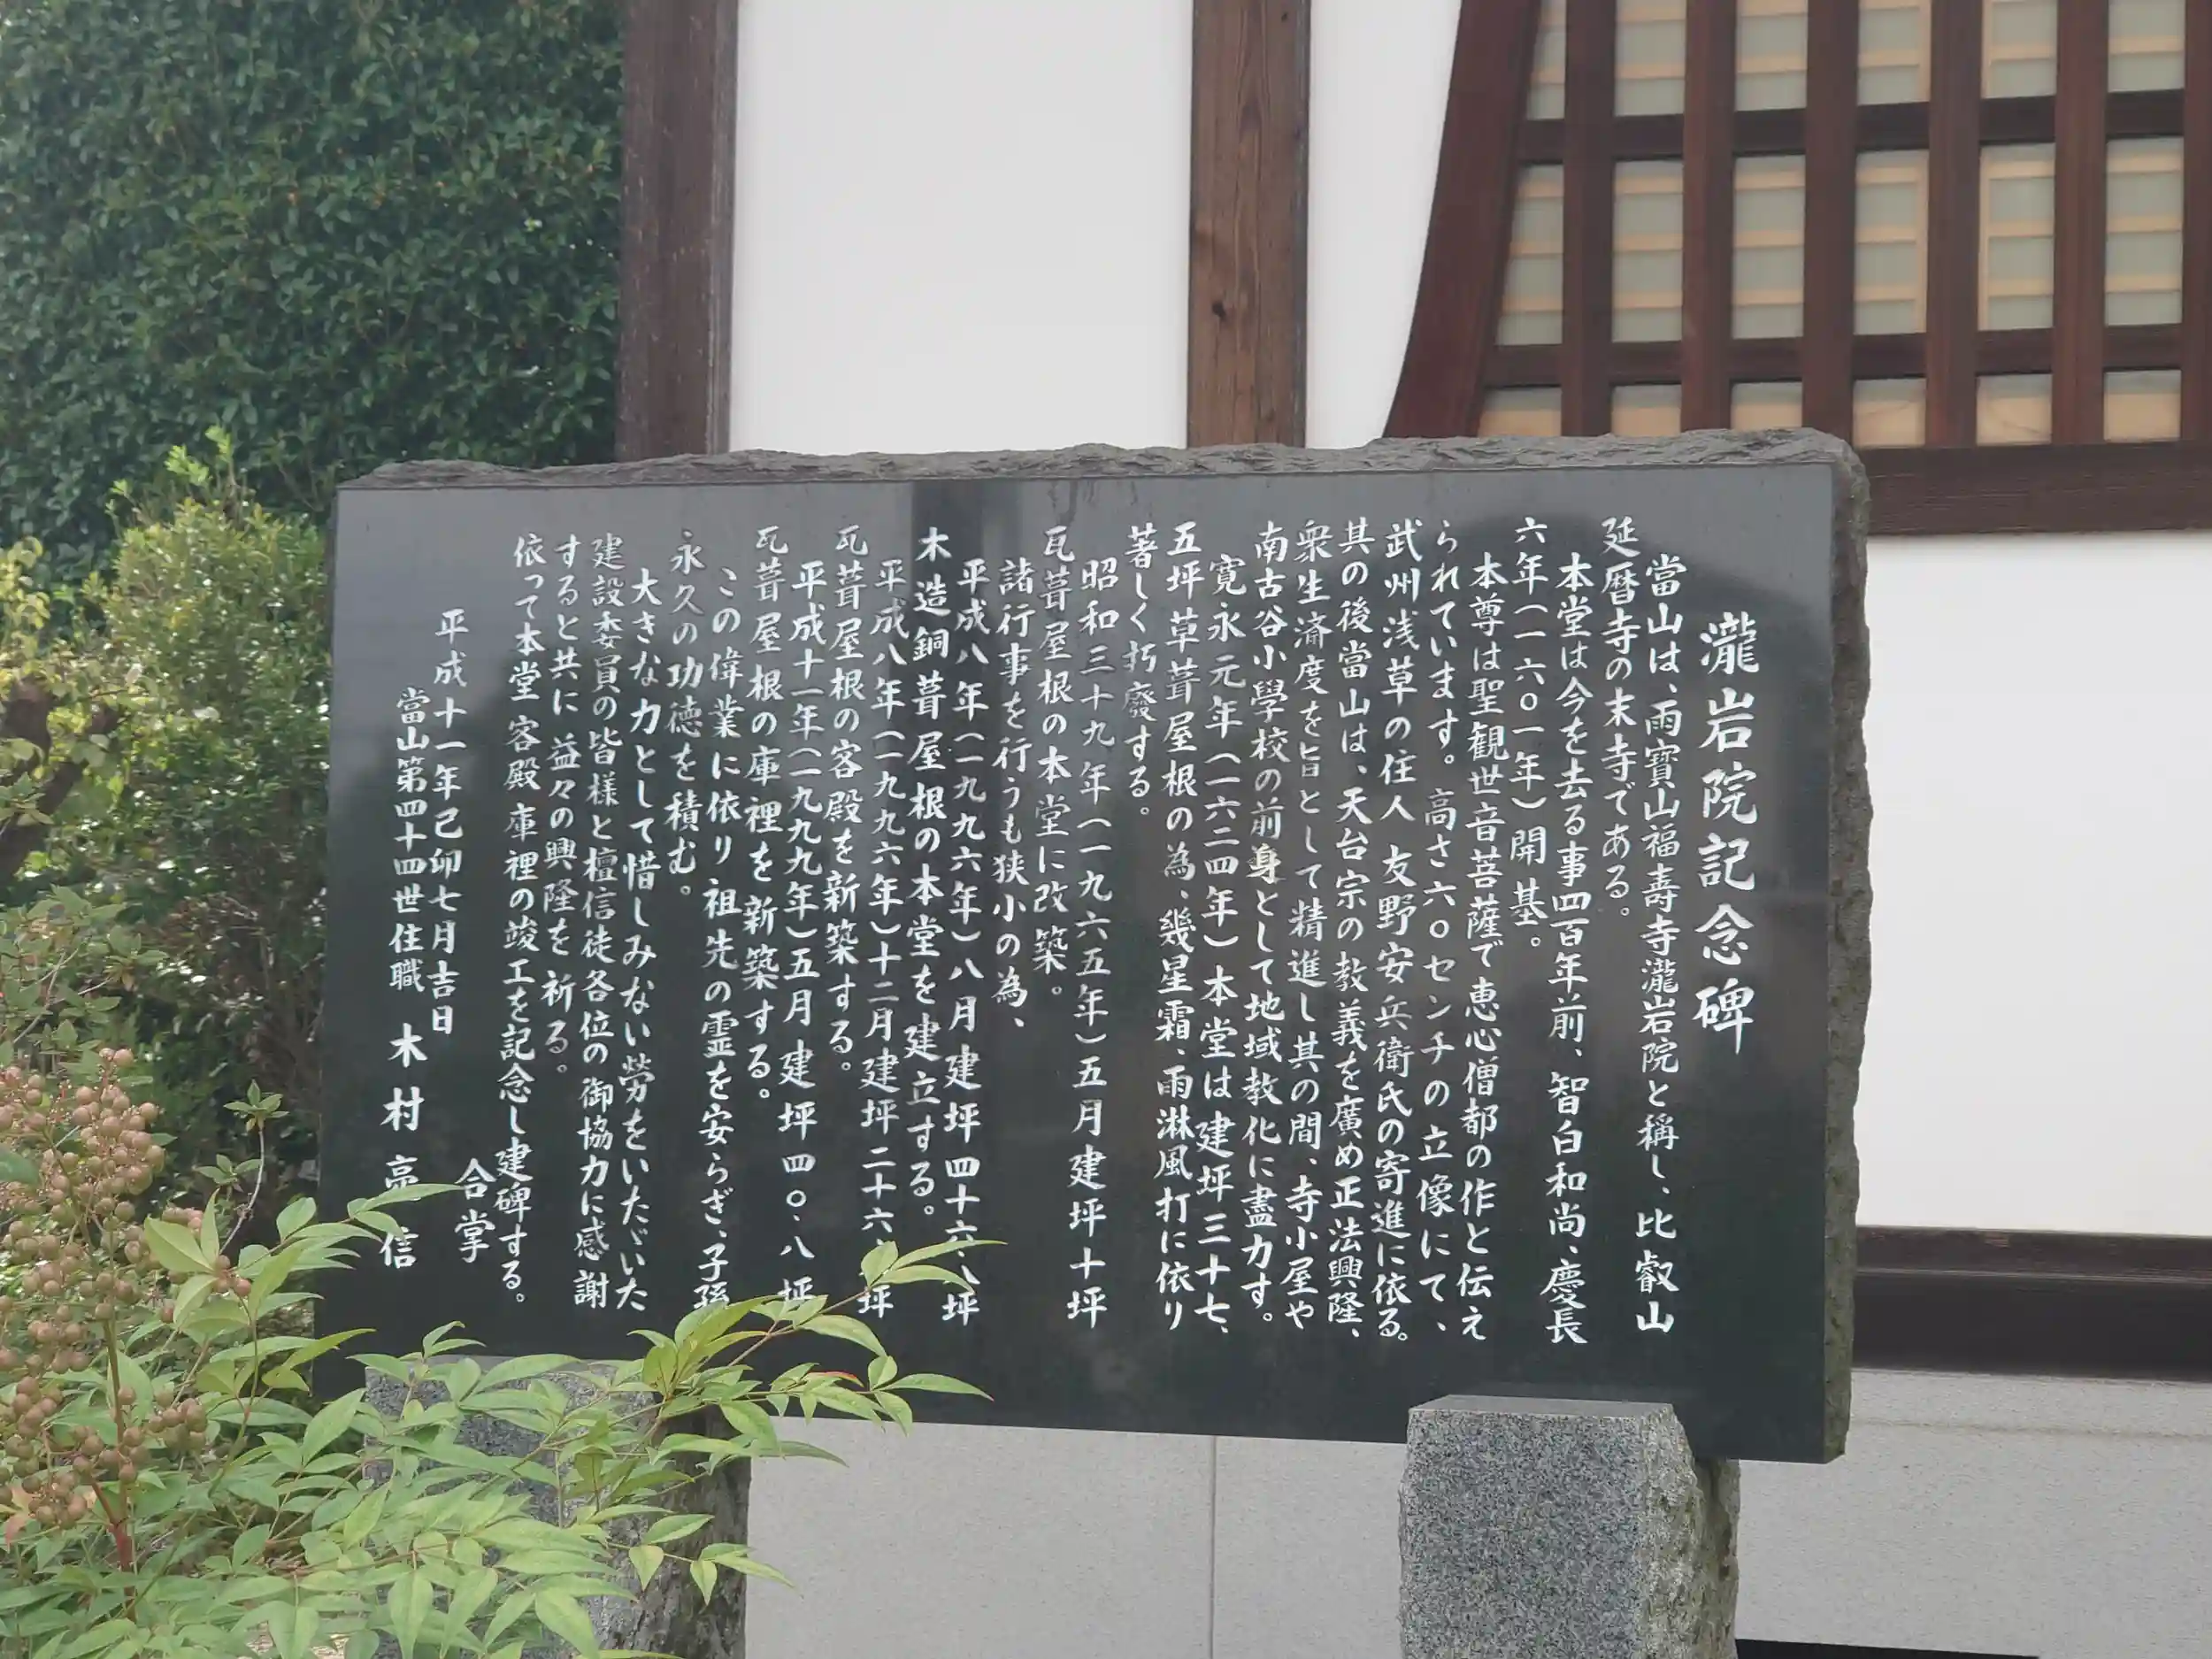 瀧岩院記念碑
當山は、雨寶山福壽寺瀧岩院と稱し、比叡山
延暦寺の末寺である。
本堂は今を去る事四百年前、智白和尚、慶長
六年(一六〇一年)開基。
本尊は聖観世音菩薩で恵心僧都の作と伝え
られています。高さ六〇センチの立像にて、
武州浅草の住人 友野安兵衛氏の寄進に依る。
其の後當山は、天台宗の教義を廣め正法興隆、
衆生済度を旨として精進し其の間、寺小屋や
南古谷小學校の前身として地域教化に盡力す。
寛永元年(一六二四年)本堂は建坪三十七、
五坪草葺屋根の為、幾星霜、雨淋風打に依り
著しく朽廢する。
昭和三十九年(一九六五年)五月建坪十坪
瓦葺屋根の本堂に改築。
諸行事を行うも狭小の為、
平成八年(一九九六年)八月建坪四十六、八坪
木造銅葺屋根の本堂を建立する。
平成八年(一九九六年)十二月建坪二十六、坪
瓦葺屋根の客殿を新築する。
平成十一年(一九九九年)五月建坪四〇、八坪
瓦葺屋根の庫裡を新築する。
この偉業に依り祖先の霊を安らぎ、子孫
永久の功徳を積む。
大きな力として惜しみない勞をいたゞいた
建設委員の皆様と檀信徒各位の御協力に感謝
すると共に益々の興隆を祈る。
依って本堂客殿庫裡の竣工を記念し建碑する。
合掌
平成十一年己卯七月吉日
當山第四十四世住職 木村亮信